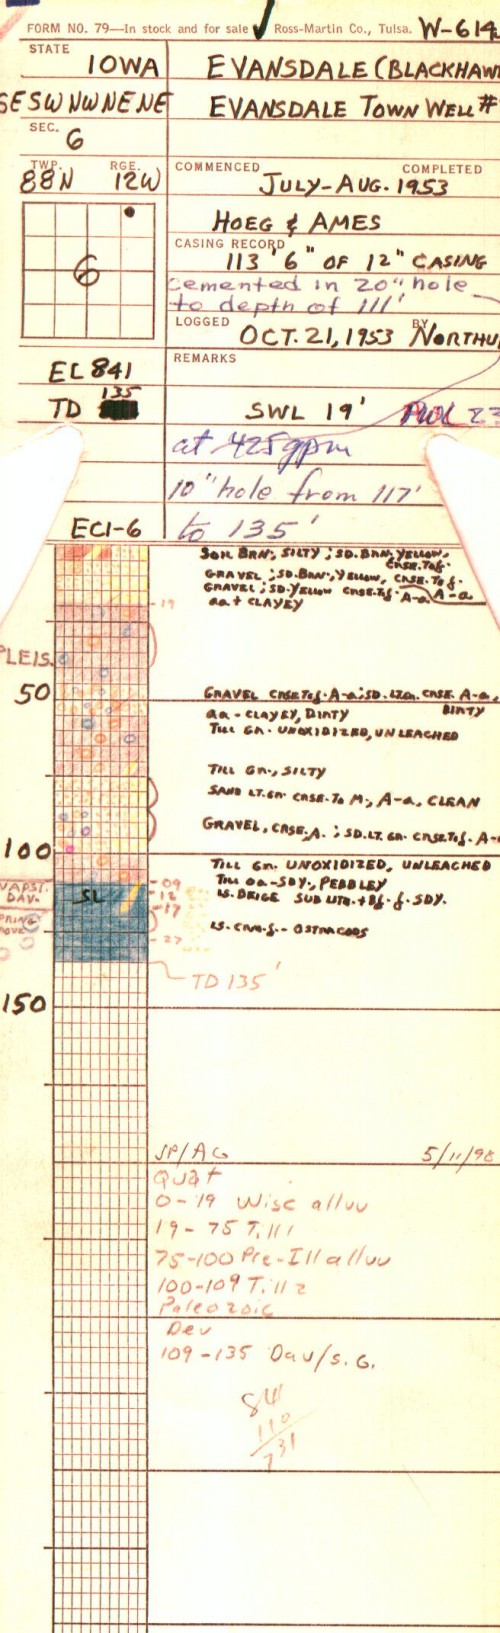 FORM NO. 79—In stock and for sale Ross-Martin Co., Tulsa. W-614
STATE
IOWA EVANSDALE (BLACKHAW
SESWNWNENE EVANSDALE TOWN WELL #
SEC. 6
TWP. RGE. COMMENCED COMPLETED
88N 12W JULY-AUG. 1953
HOEG & AMES
CASING RECORD
6 113' 6" OF 12" CASING
Cemented in 20" hole
to depth of 111'
LOGGED OCT. 21, 1953 BY NORTHU
REMARKS
EL 841
135
TD SWL 19' PWL 23
at 425gpm
10" hole from 117'
EC1-6 to 135'
SOIL BRN; SILTY; SD. BRN, YELLOW,
CRSE. TO f.
GRAVEL; SD. BRN, YELLOW, CRSE. TO f.
GRAVEL; SD. YELLOW CRSE. TO f. A-a A-a
aa + CLAYEY
19
PLEIS.
50 GRAVEL CRSE TO f. A-a; SD. LT. Gn. CRSE. A-a,
DIRTY
aa - CLAYEY, DIRTY
TILL Gn. UNOXIDIZED, UNLEACHED
TILL Gn., SILTY
SAND LT. Gn. CRSE. TO M., A-a, CLEAN
GRAVEL, CRSE. A.; SD. LT. Gn. CRSE TO f. A-
100
TILL Gn. UNOXIDIZED, UNLEACHED
TILL aa-SDY., PEBBLEY
WAPSI. DAV. SL -09 -12 -17
LS. BEIGE SUB LITH. + f. SDY.
LS. CRM-f. - OSTRACODS
-27
TD 135'
150
JP/AG 5/11/98
Quat
0-19 Wisc alluv
19-75 Till 1
75-100 Pre-Ill alluv
100-109 Till 2
Paleozoic
Dev
109-135 Dav/S.G.
841
110
731